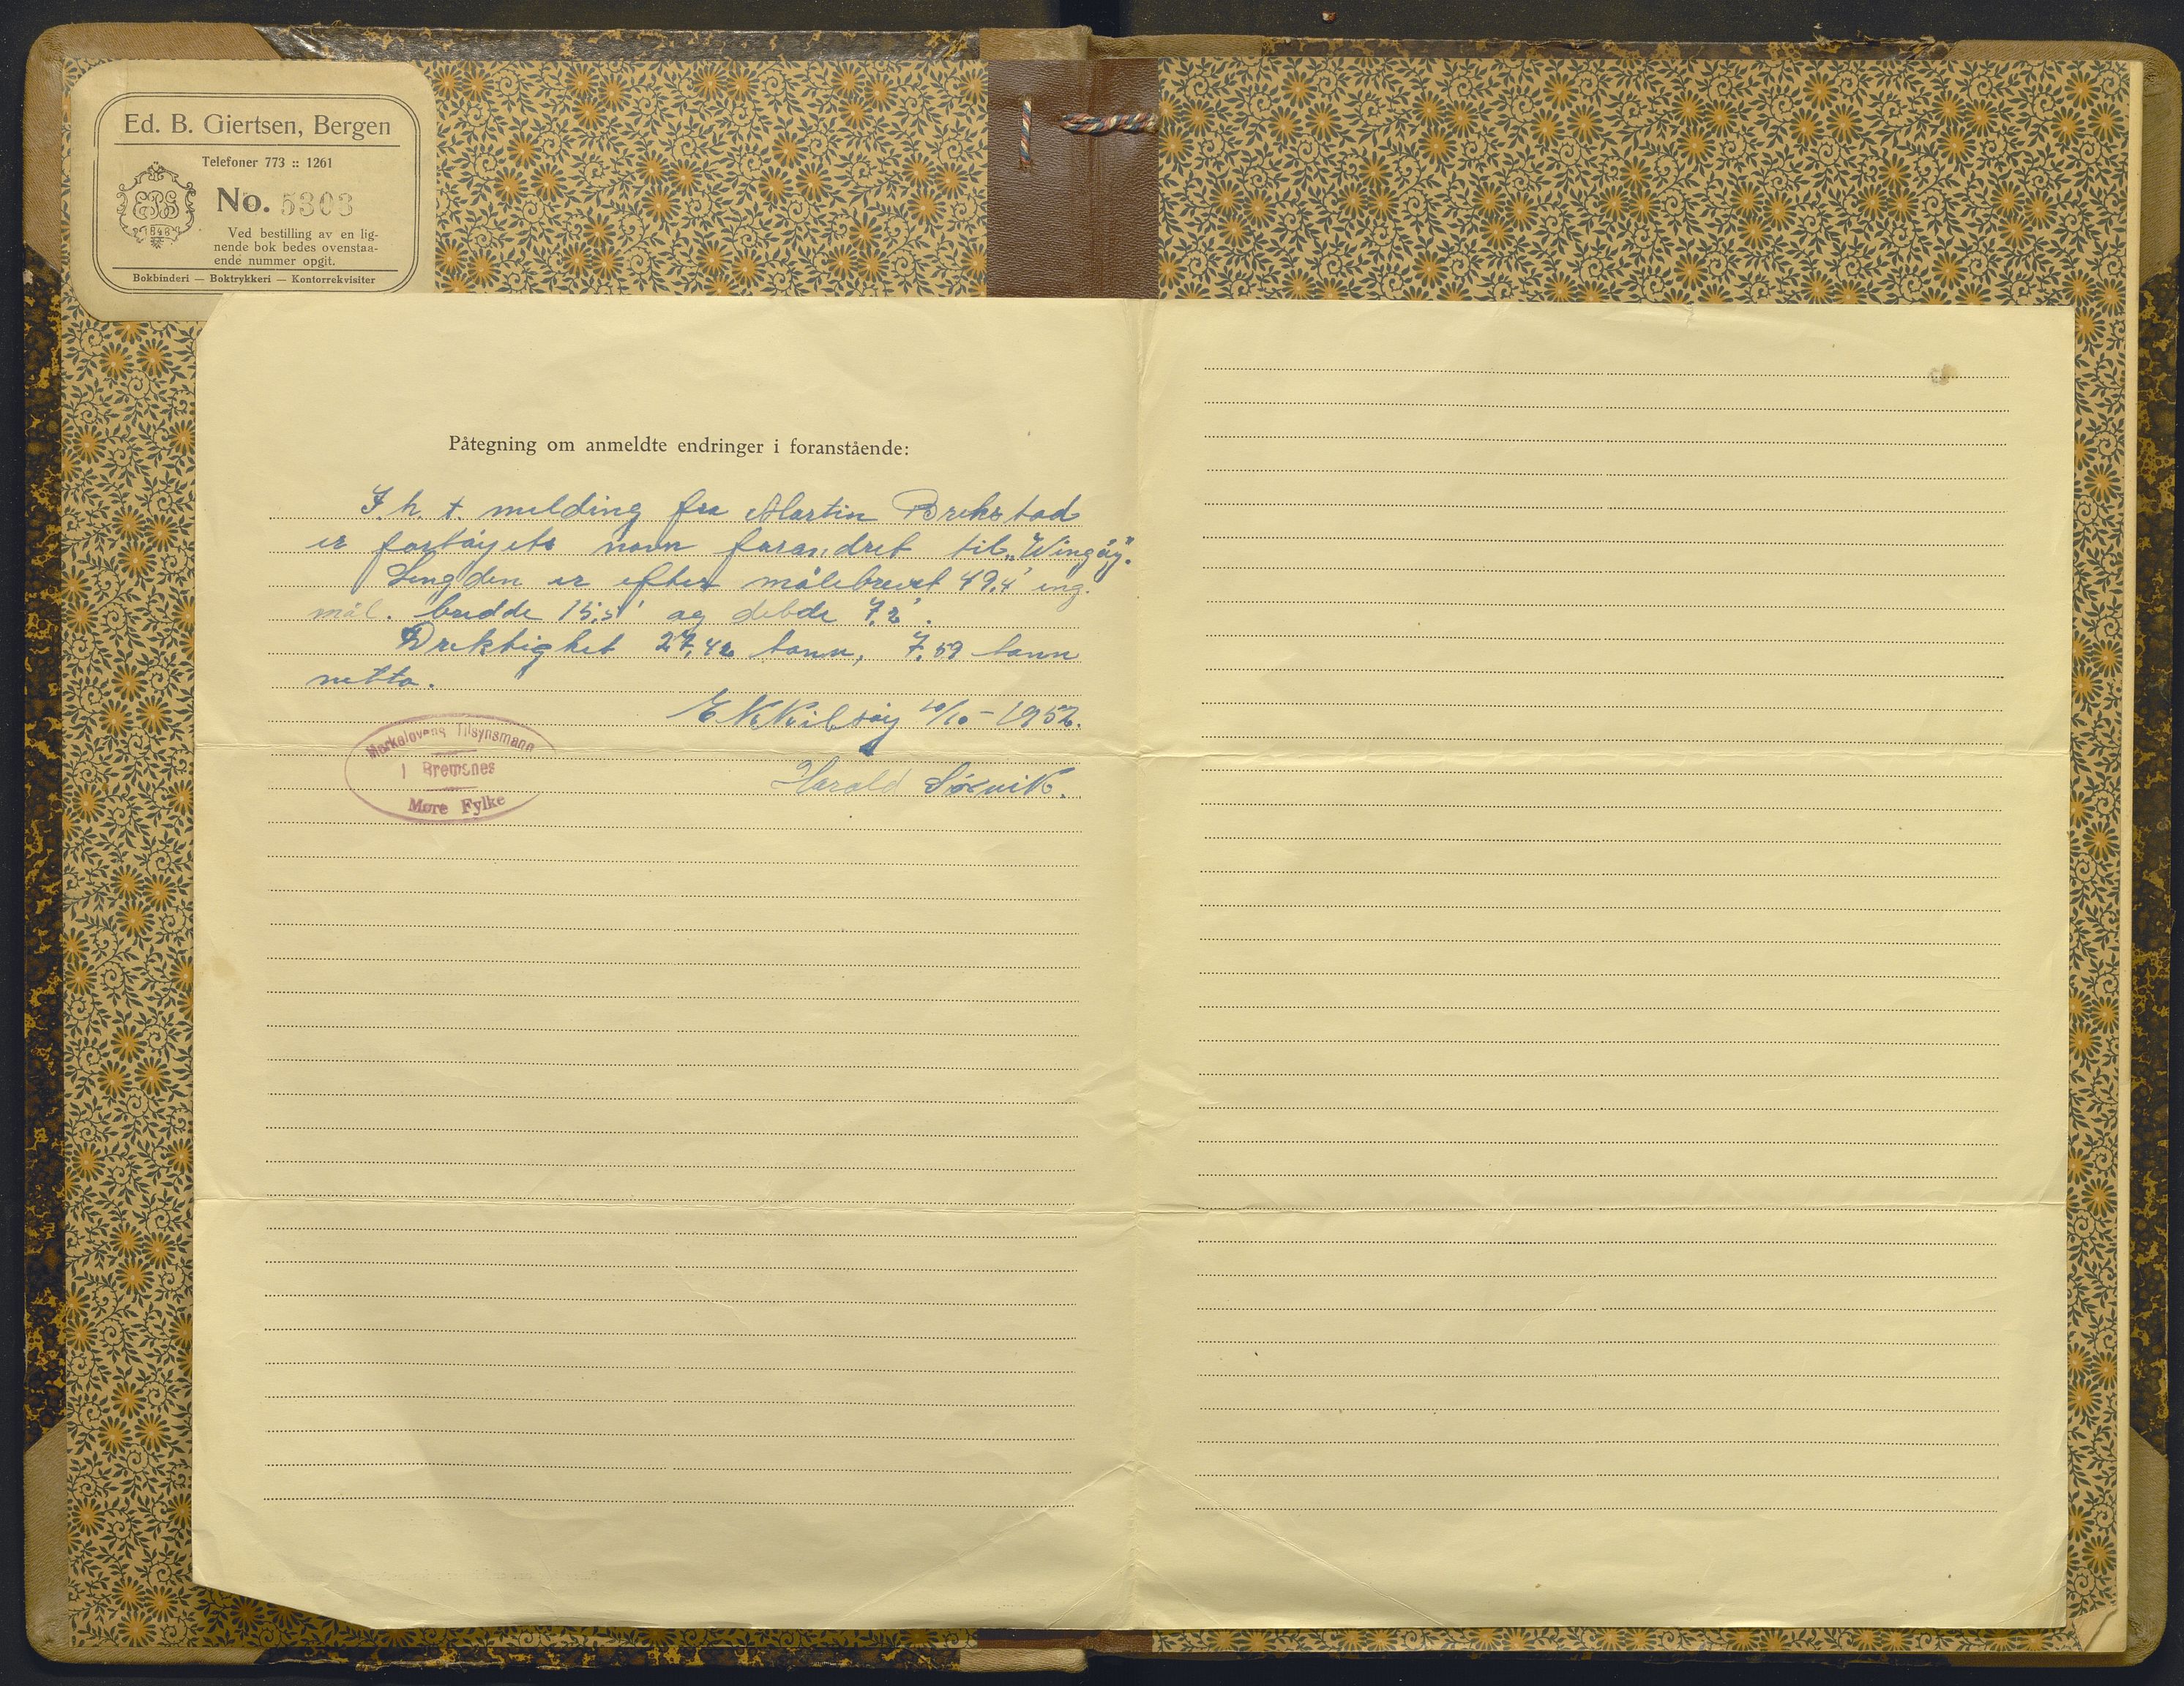 Ed. B. Giertsen, Bergen
Telefoner 773 :: 1261
EBG
1848
No. 5303
Ved bestilling av en lig-
nende bok bedes ovenstaa-
ende nummer opgit.
Bokbinderi — Boktrykkeri — Kontorrekvisiter
Påtegning om anmeldte endringer i foranstående:
I. h. t. melding fra Martin Brekstad
er fartøyets navn forandret til „Wingøy".
Lengden er efter målebrevet 49,4' eng.
mål. bredde 15,5' og debde 7,2'.
Drektighet 27,42 tonn, 7,59 tonn
netto.
Ekkilsøy 10/10 - 1952.
Merkelovens Tilsynsmann
i Bremsnes
Møre Fylke
Harald Sørvik.